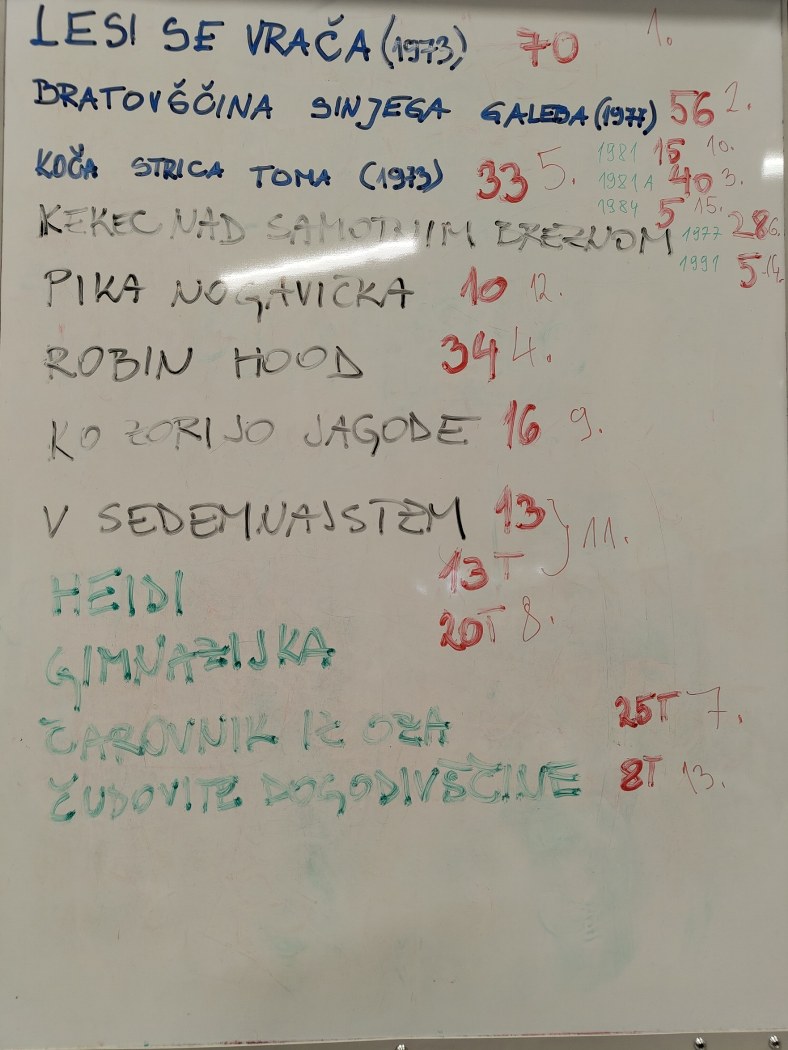 LESI SE VRAČA (1973) 70 1.
BRATOVŠČINA SINJEGA GALEBA (1977) 56 2.
1981 15 10.
KOČA STRICA TOMA (1973) 33 5. 1981A 40 3.
1984 5 15.
KEKEC NAD SAMOTNIM BREZNOM 1977 28 6.
1991 5 14.
PIKA NOGAVIČKA 10 12.
ROBIN HOOD 34 4.
KO ZORIJO JAGODE 16 9.
V SEDEMNAJSTEM 13 11.
HEIDI 13T
GIMNAZIJKA 20T 8.
ČAROVNIK IZ OZA 25T 7.
ČUDOVITE DOGODIVŠČINE 8T 13.